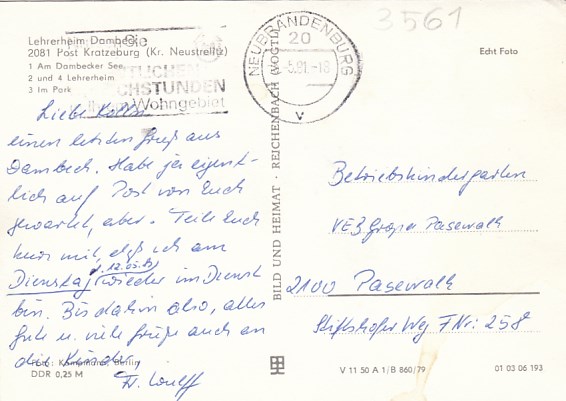 3561
Lehrerheim Dambeck
2081 Post Kratzeburg (Kr. Neustrelitz)
1 Am Dambecker See
2 und 4 Lehrerheim
3 Im Park
Die
TLICHEN
CHSTUNDEN
Wohngebiet
NEUBRANDENBURG
20
-5.81.-18
v
Echt Foto
Liebe
einen letzten Gruß aus
Dambeck. Habe ja eigent-
lich auf Post von Euch
gewartet, aber. Teile Euch
kurz mit, daß ich am
Dienstag, 12.05.81, wieder im Dienst
bin. Bis dahin also, alles
Gute u. viele Grüße auch an
die Kinder,
Fr. Wulff
Betriebskindergarten
VEB Gräpo Pasewalk
2100 Pasewalk
Stiftshofer Weg FNr: 258
BILD UND HEIMAT · REICHENBACH (VOGTL)
Foto: Berlin
DDR 0,25 M
V 11 50 A 1/B 860/79
01 03 06 193